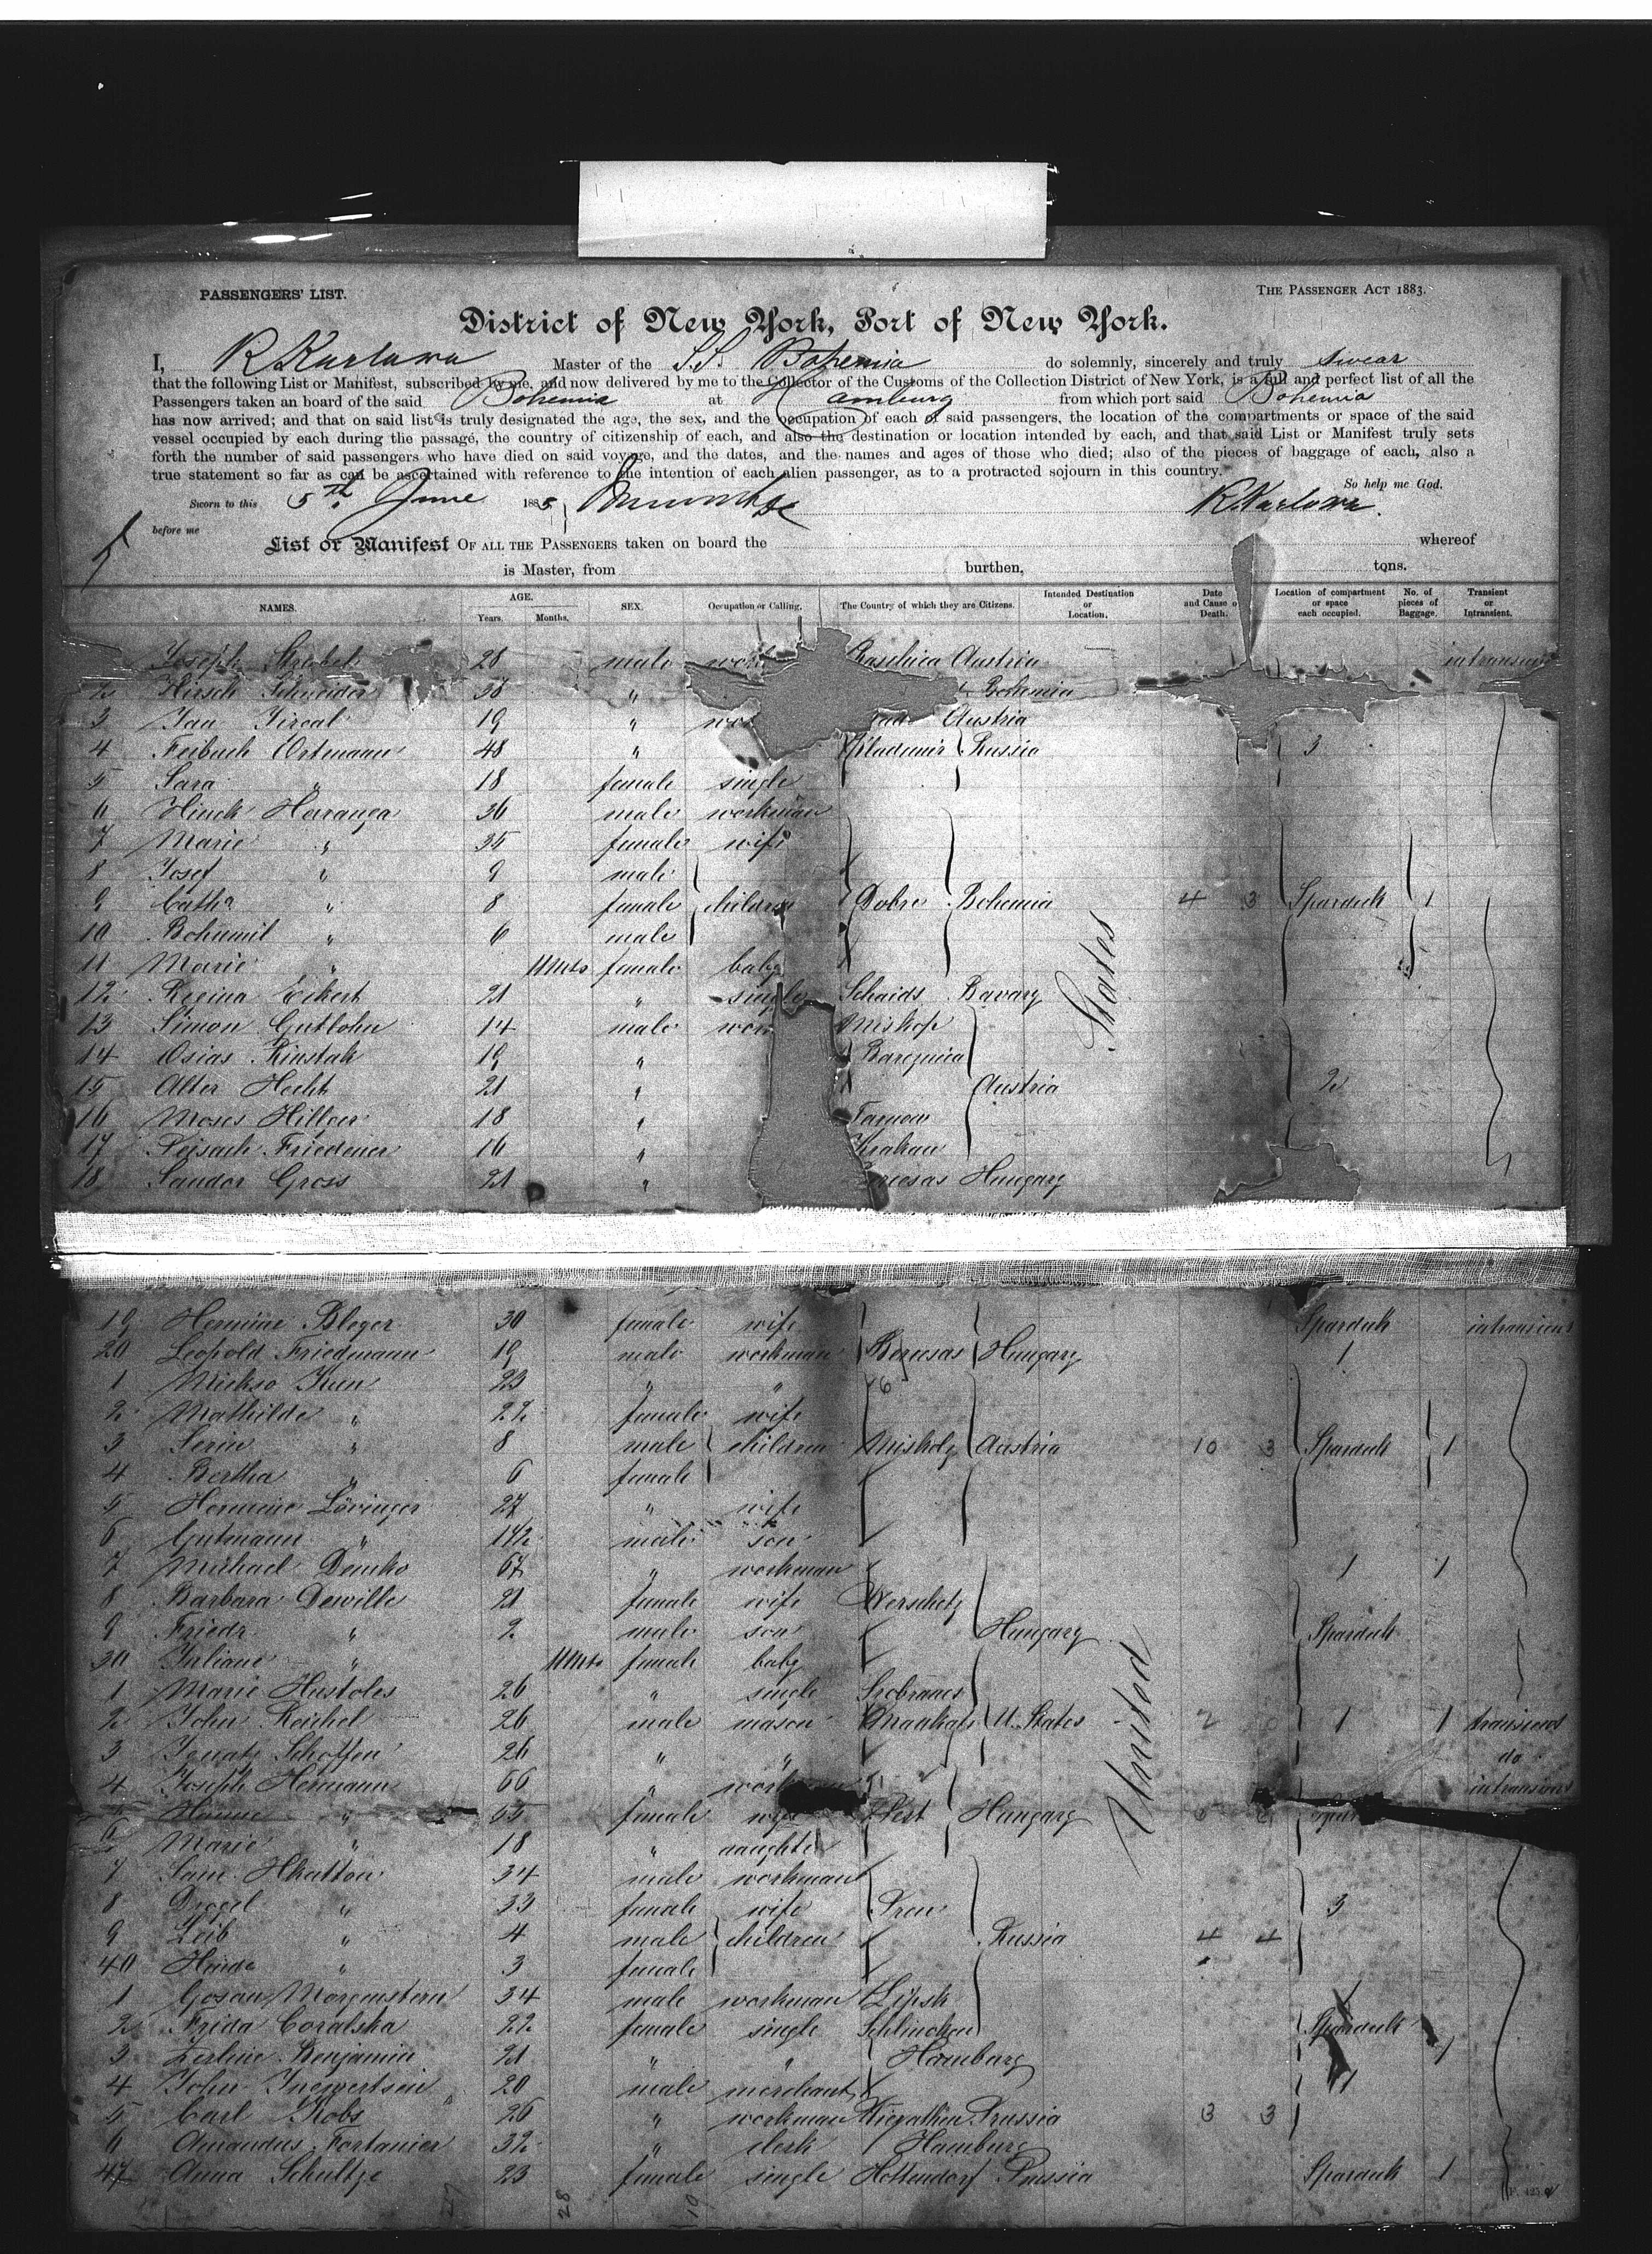 PASSENGERS' LIST.
THE PASSENGER ACT 1883.
District of New York, Port of New York.
I, R Karlowa Master of the S.S. Bohemia do solemnly, sincerely and truly swear
that the following List or Manifest, subscribed by me, and now delivered by me to the Collector of the Customs of the Collection District of New York, is a full and perfect list of all the
Passengers taken an board of the said Bohemia at Hamburg from which port said Bohemia
has now arrived; and that on said list is truly designated the age, the sex, and the occupation of each of said passengers, the location of the compartments or space of the said
vessel occupied by each during the passage, the country of citizenship of each, and also the destination or location intended by each, and that said List or Manifest truly sets
forth the number of said passengers who have died on said voyage, and the dates, and the names and ages of those who died; also of the pieces of baggage of each, also a
true statement so far as can be ascertained with reference to the intention of each alien passenger, as to a protracted sojourn in this country.
So help me God.
Sworn to this 5th June 188 R. Karlowa.
before me
List or Manifest OF ALL THE PASSENGERS taken on board the whereof
is Master, from burthen, tons.
NAMES. AGE. Years. Months. SEX. Occupation or Calling. The Country of which they are Citizens. Intended Destination or Location. Date and Cause o Death. Location of compartment or space each occupied. No. of pieces of Baggage. Transient or Intransient.
Joseph 28 male Austria
2 Hirsch Schneider 38 " Bohemia
3 Jan Jircal 19 " Austria
4 Feibuch Ortmann 48 " Russia 3
5 Sara " 18 female single
6 Hinek Horranga 36 male workman
7 Marie " 35 female wife
8 Josef " 9 male
9 Catha " 8 female children Dobre Bohemia 4 3 Spardeck 1
10 Bohumil " 6 male
11 Marie " 11 Mts female baby
12 Regina Eikert 21 " single Schaids Bavary
States
13 Simon Gutlohn 14 male Miskop
14 Osias Rinstak 19 "
15 Alter Hecht 21 " Austria 2
16 Moses Hilfer 18 " Tarnow
17 Leisach Friedener 16 " Krakau
18 Sandor Gross 21 " Hungary
19 Hermine Bleger 30 female wife Spardeck intransient
20 Leopold Friedmann 19 male workman Beresas Hungary 1
1 Mickso Kun 23 " "
2 Mathilde " 22 female wife
3 Serin " 8 male children Miskolz Austria 10 3 Spardeck 1
4 Bertha " 6 female
5 Hermine Lövinger 27 " wife
6 Gutmann " 1 1/2 male son
7 Michael Demko 67 " workman 1 1
8 Barbara Dewille 21 female wife Werschetz
9 Friedr. " 2 male son Hungary Spardeck
30 Juliane " 11 Mts female baby
1 Marie Hustoles 26 " single Sobrances
2 John Reichel 26 male mason U. States 2 1 1 transient
United
3 Ignatz Schoffen 26 " " do
4 Joseph Hermann 66 " intransient
5 Hanne " 55 female wife Pest Hungary
6 Marie " 18 " daughter
7 Sam. Hhatton 34 male workman
8 " 33 female wife Pren 3
9 Leib " 4 male children Russia 4 4
40 Hinde " 3 female
1 Gosan Morgenstern 34 male workman Lipsk
2 Frida Coralska 22 female single Spardeck
3 Zerline Benjamin 21 " " Hamburg 1
4 John Ingwertsein 20 male merchant 1
5 Carl Kobs 26 " workman Prussia 3 3
6 Amandus Fortanier 32 " clerk Hamburg
47 Anna Schultze 23 female single Hollendorf Prussia Spardeck 1
28 19